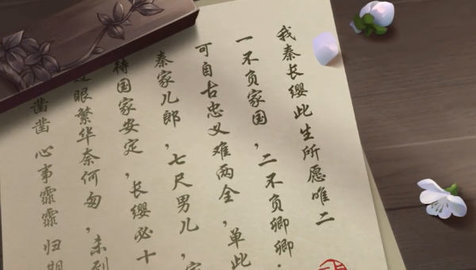 我秦长缨此生所愿唯二
一不负家国，二不负卿卿，
可自古忠义难两全，单此
秦家儿郎，七尺男儿，
待国家安定，长缨必十
眼繁华奈何匆，未到
凿凿 心事霏霏 归期